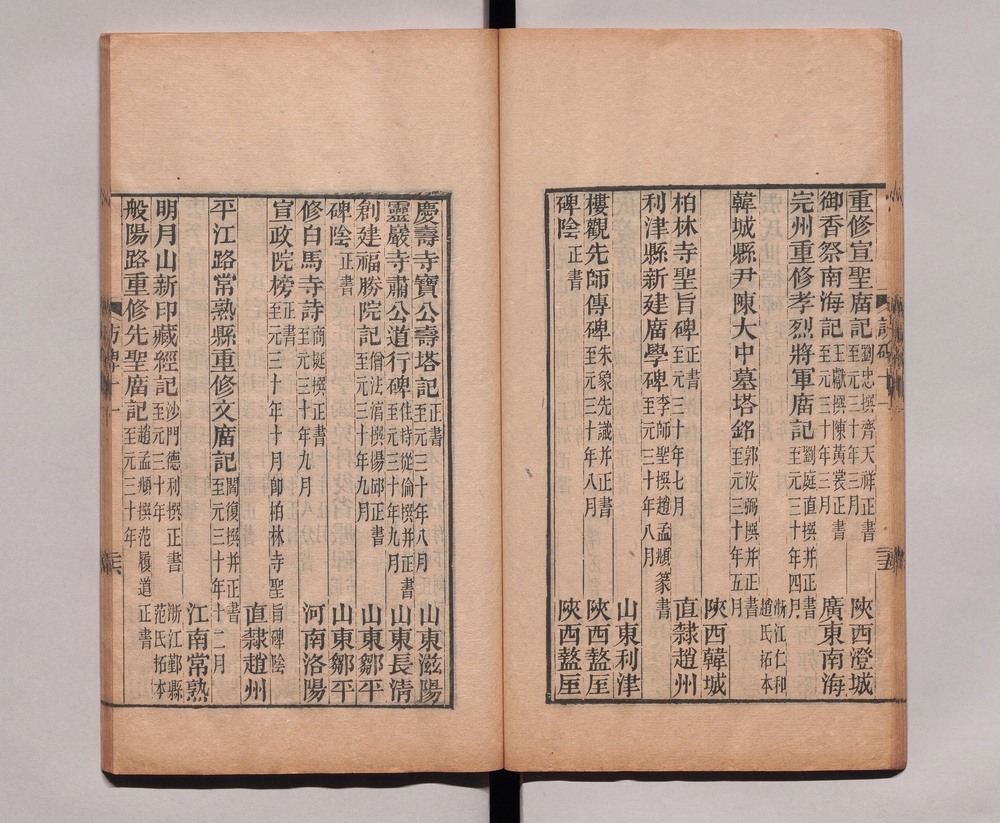 重修宣聖廟記 劉忠撰齊天祥正書 至元三十年三月 陝西澄城
御香祭南海記 王獻撰陳黃裳正書 至元三十年三月 廣東南海
完州重修孝烈將軍廟記 劉庭直撰并正書 至元三十年四月 浙江仁和 趙氏拓本
韓城縣尹陳大中墓塔銘 郭汝弼撰并正書 至元三十年五月 陝西韓城
柏林寺聖旨碑 正書 至元三十年七月 直隸趙州
利津縣新建廟學碑 李師聖撰趙孟頫篆書 至元三十年八月 山東利津
樓觀先師傳碑 朱象先識并正書 至元三十年八月 陝西盩厔
碑陰 正書 陝西盩厔
慶壽寺寶公壽塔記 正書 至元三十年八月 山東滋陽
靈巖寺肅公道行碑 住持從倫撰并正書 至元三十年九月 山東長清
創建福勝院記 僧法淯撰楊邱正書 至元三十年九月 山東鄒平
碑陰 正書 山東鄒平
修白馬寺詩 商挺撰正書 至元三十年九月 河南洛陽
宣政院榜 正書 至元三十年十月卽柏林寺聖旨碑陰 直隸趙州
平江路常熟縣重修文廟記 閻復撰并正書 至元三十年十二月 江南常熟
明月山新印藏經記 沙門德利撰正書 至元三十年 浙江鄞縣 范氏拓本
般陽路重修先聖廟記 趙孟頫撰范履道正書 至元三十年